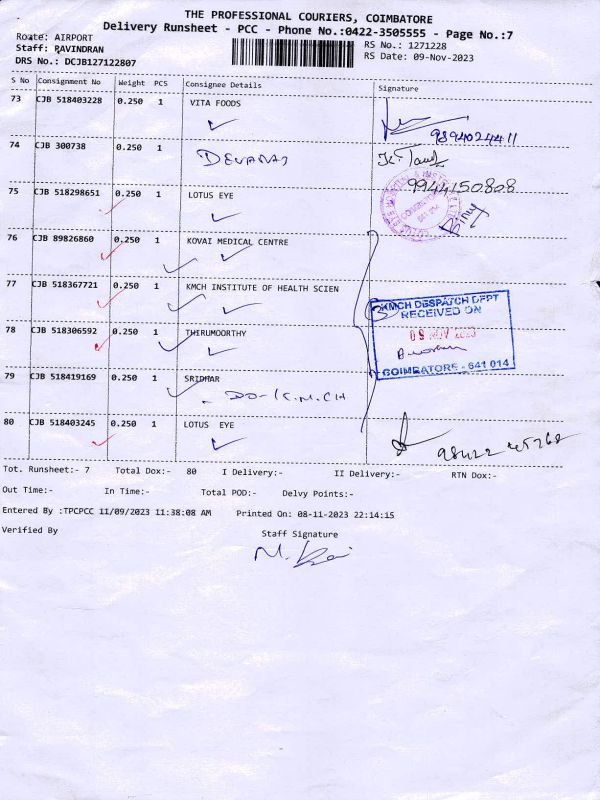 THE PROFESSIONAL COURIERS, COIMBATORE
Delivery Runsheet - PCC - Phone No.:0422-3505555 - Page No.:7
Route: AIRPORT
Staff: RAVINDRAN
DRS No.: DCJB127122807
RS No.: 1271228
RS Date: 09-Nov-2023
S No Consignment No Weight PCS Consignee Details Signature
73 CJB 518403228 0.250 1 VITA FOODS
9894024411
74 CJB 300738 0.250 1 DEVARAJ
75 CJB 518298651 0.250 1 LOTUS EYE
9944150808
76 CJB 89826860 0.250 1 KOVAI MEDICAL CENTRE
77 CJB 518367721 0.250 1 KMCH INSTITUTE OF HEALTH SCIEN
KMCH DESPATCH DEPT
RECEIVED ON
09 NOV 2023
COIMBATORE - 641 014
78 CJB 518306592 0.250 1 THERUMOORTHY
79 CJB 518419169 0.250 1 SRIDHAR
- DO - K.M.CH
80 CJB 518403245 0.250 1 LOTUS EYE
Tot. Runsheet:- 7 Total Dox:- 80 I Delivery:- II Delivery:- RTN Dox:-
Out Time:- In Time:- Total POD:- Delvy Points:-
Entered By :TPCPCC 11/09/2023 11:38:08 AM Printed On: 08-11-2023 22:14:15
Verified By Staff Signature